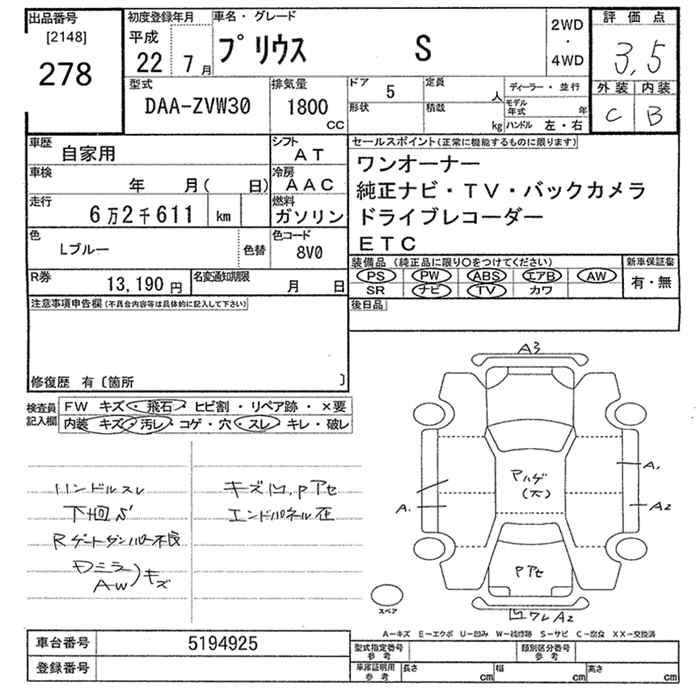 出品番号
[2148]
278
初度登録年月
平成
22 7月
車名・グレード
プリウス S
2WD
・
4WD
評価点
3.5
外装 内装
C B
型式
DAA-ZVW30
排気量
1800
CC
ドア 5
定員 人
形状
積載 kg
ディーラー・並行
モデル年式 年
ハンドル 左・右
車歴
自家用
シフト
AT
車検
年 月( 日)
冷房
AAC
走行
6万2千611 km
燃料
ガソリン
色
Lブルー
色替
色コード
8V0
R券
13,190円
名変通知期限
月 日
セールスポイント(正常に機能するものに限ります)
ワンオーナー
純正ナビ・TV・バックカメラ
ドライブレコーダー
ETC
装備品 (純正品に限り○をつけてください)
新車保証書
PS PW ABS エアB AW
SR ナビ TV カワ
有・無
後日品
注意事項申告欄(不具合内容等は具体的に記入して下さい)
修復歴 有〔箇所 〕
検査員記入欄
FW キズ・飛石・ヒビ割・リペア跡・×要
内装 キズ・汚レ・コゲ・穴・スレ・キレ・破レ
ハンドルスレ
下回サ
Rゲートダンパー不良
ドアミラー
AW
キズ
キズ凹,Pアセ
エンドパネル歪
A3
Pハゲ
(大)
A1
A2
A1
Pアセ
凹ワレA2
スペア
A-キズ E-エクボ U-凹み W-補修跡 S-サビ C-腐食 XX-交換済
車台番号
5194925
登録番号
型式指定番号
参考
類別区分番号
参考
車庫証明用
参考
長さ cm
幅 cm
高さ cm